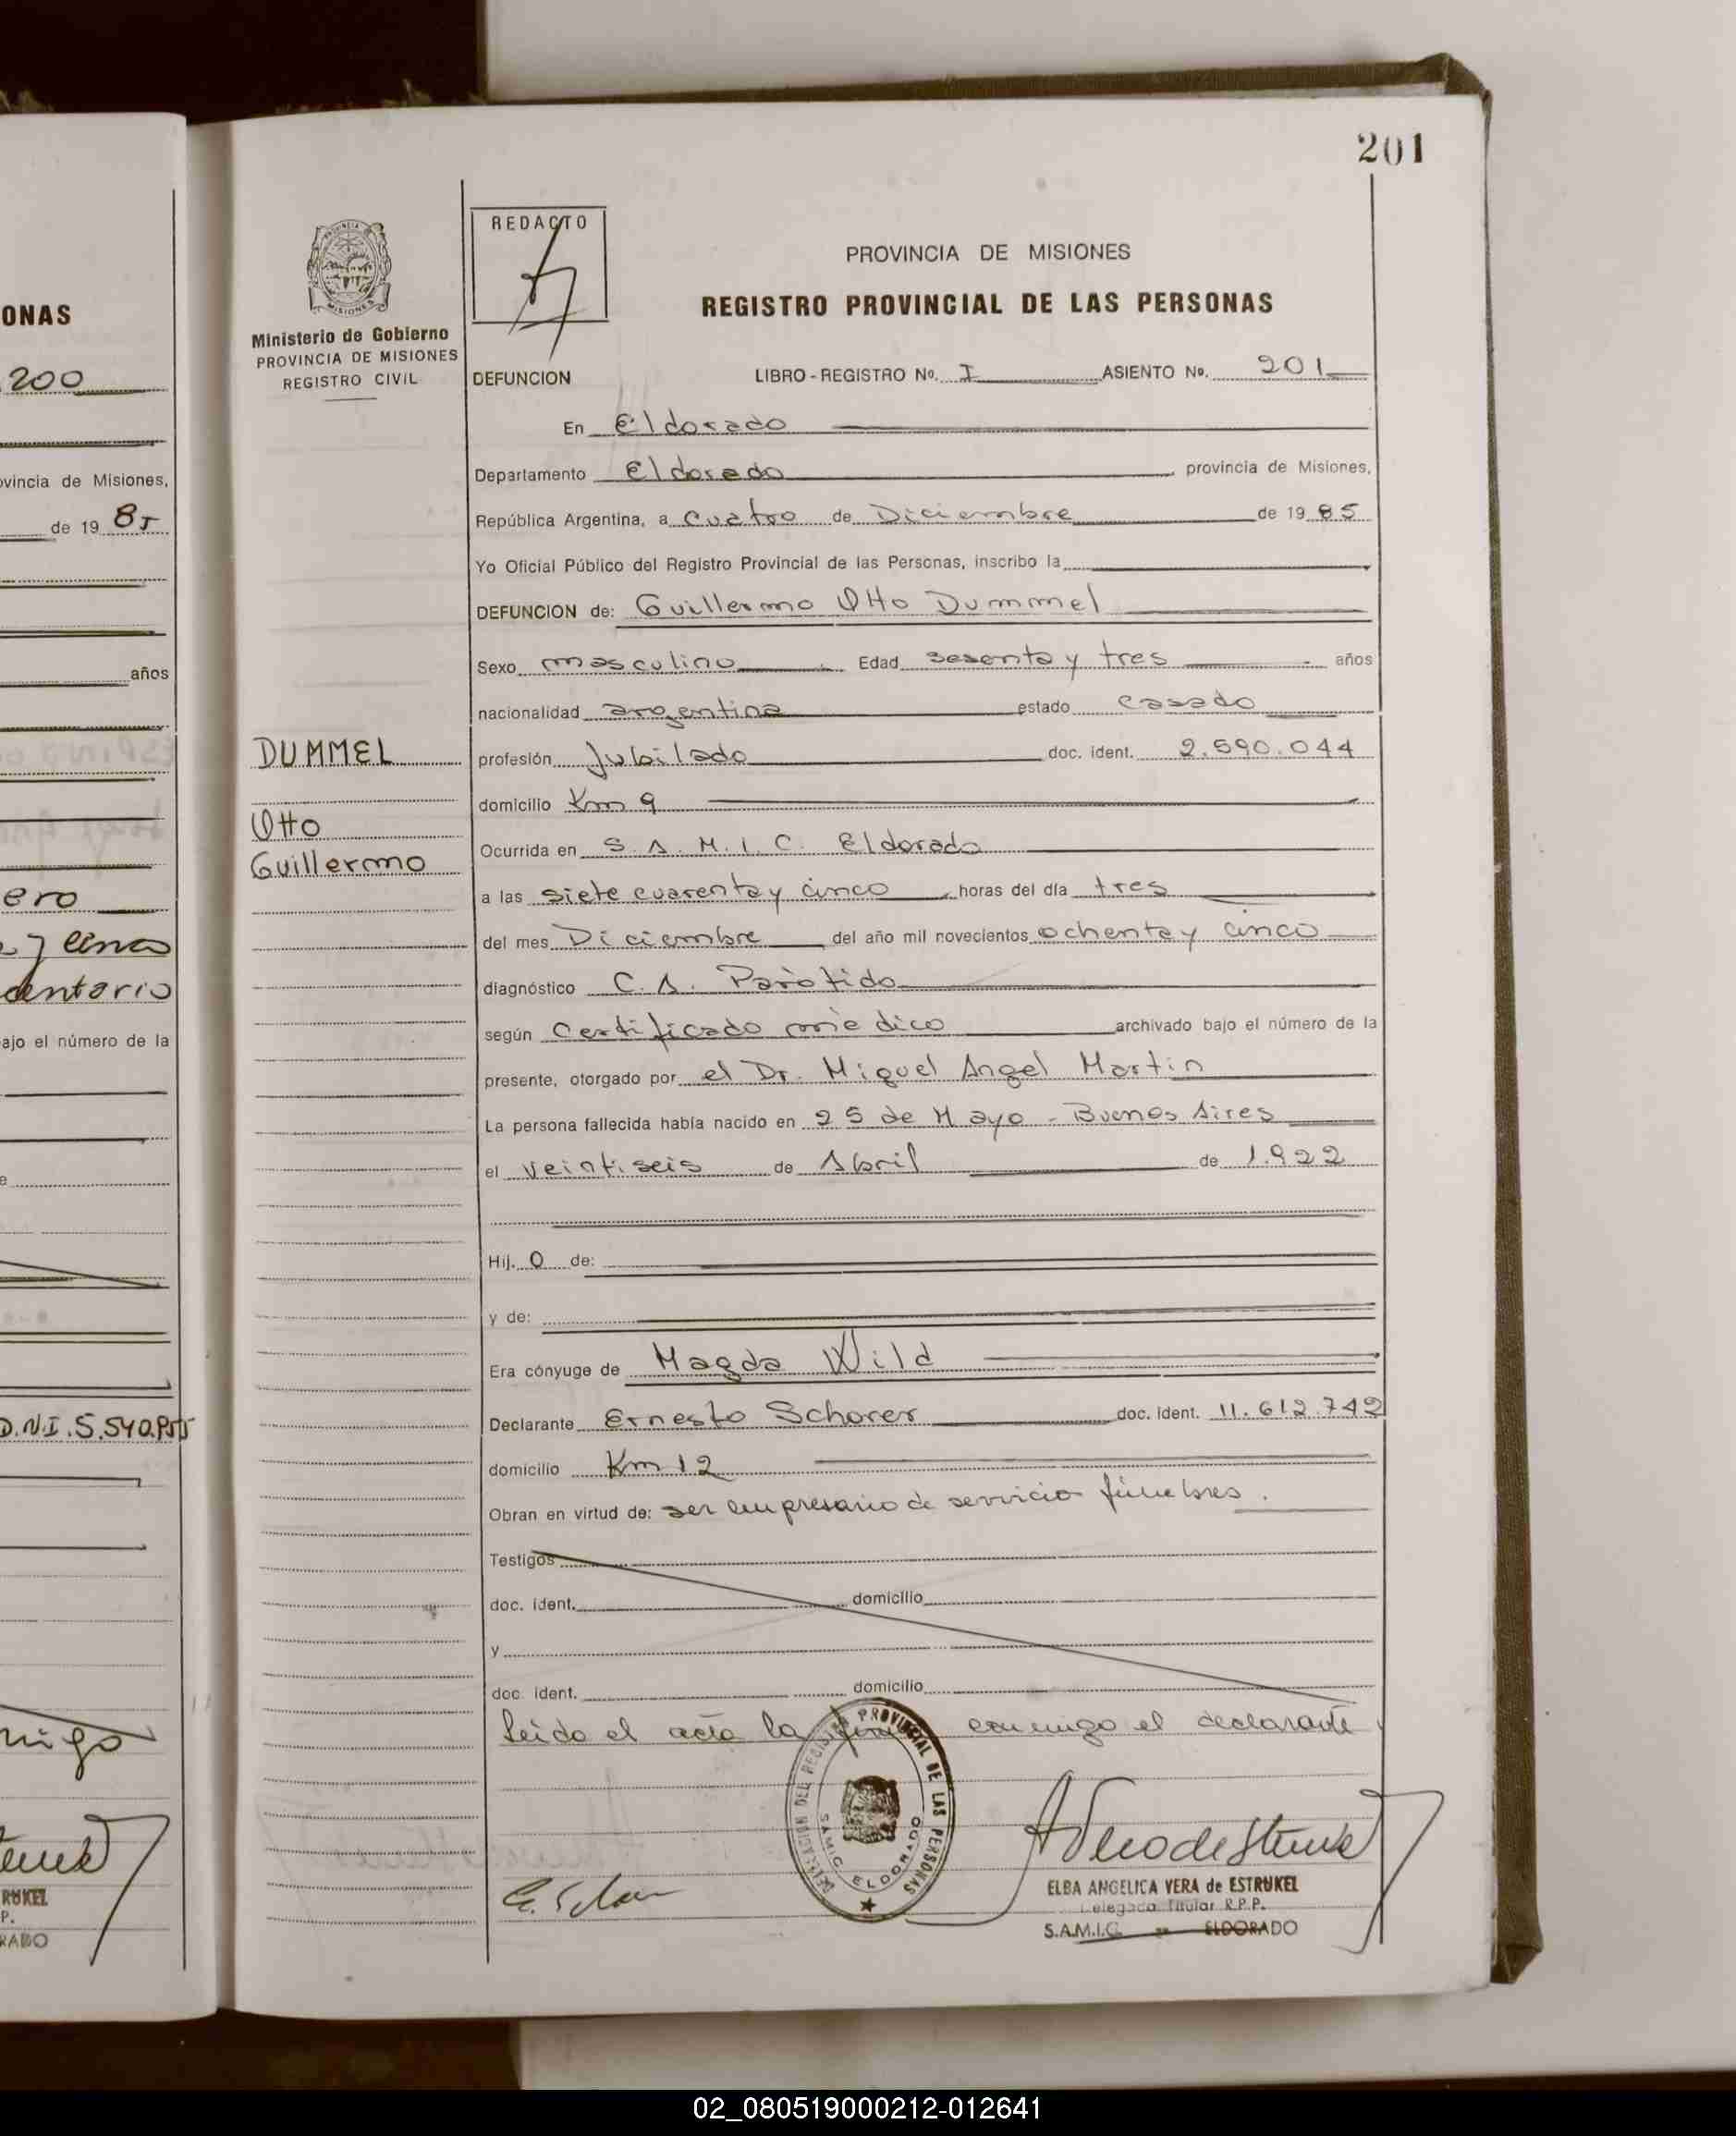 201
ONAS
200
vincia de Misiones,
de 19 85
años
ero
y cinco
dentario
ajo el número de la
D.N.I. 5.540.855
migo
RUKEL
P.
RADO
PROVINCIA
MISIONES
Ministerio de Gobierno
PROVINCIA DE MISIONES
REGISTRO CIVIL
DUMMEL
Otto
Guillermo
REDACTO
PROVINCIA DE MISIONES
REGISTRO PROVINCIAL DE LAS PERSONAS
DEFUNCION LIBRO - REGISTRO No. I ASIENTO No. 201
En Eldorado
Departamento Eldorado provincia de Misiones,
República Argentina, a cuatro de Diciembre de 19 85
Yo Oficial Público del Registro Provincial de las Personas, inscribo la
DEFUNCION de: Guillermo Otto Dummel
Sexo masculino Edad sesenta y tres años
nacionalidad argentina estado casado
profesión Jubilado doc. ident. 2.590.044
domicilio Km 9
Ocurrida en S. A. M. I. C. Eldorado
a las siete cuarenta y cinco horas del día tres
del mes Diciembre del año mil novecientos ochenta y cinco
diagnóstico C. A. Parótido
según Certificado médico archivado bajo el número de la
presente, otorgado por el Dr. Miguel Angel Martin
La persona fallecida había nacido en 25 de Mayo - Buenos Aires
el veintiseis de Abril de 1.922
Hij. o de:
y de:
Era cónyuge de Magda Wild
Declarante Ernesto Schorer doc. ident. 11.612.742
domicilio Km 12
Obran en virtud de: ser empresario de servicio fúnebres.
Testigos
doc. ident. domicilio
y
doc. ident. domicilio
Leido el acta la firma conmigo el declarante
DELEGACION DEL REGISTRO PROVINCIAL DE LAS PERSONAS
SAMIC. ELDORADO
ELBA ANGELICA VERA de ESTRUKEL
Delegada Titular R.P.P.
S.A.M.I.C. - ELDORADO
02_080519000212-012641